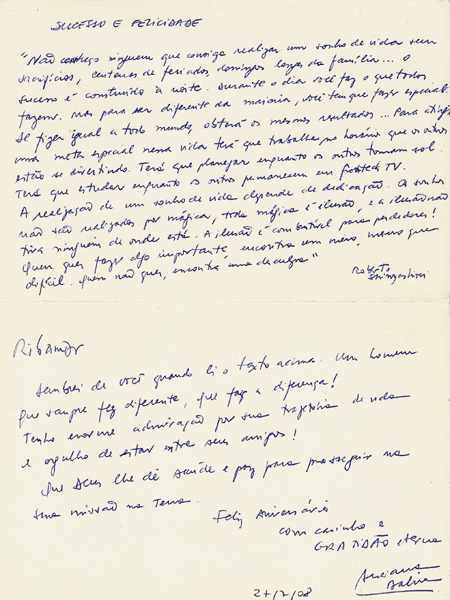 SUCESSO E FELICIDADE
"Não conheço ninguém que consiga realizar um sonho de vida sem
sacrifícios, centenas de feriados, domingos longe da família... O
sucesso é construído à noite. Durante o dia você faz o que todos
fazem. Mas para ser diferente da maioria, você tem que fazer especial.
Se fizer igual a todo mundo, obterá os mesmos resultados... Para atingir
uma meta especial nessa vida terá que trabalhar no horário que os outros
estão se divertindo. Terá que planejar enquanto os outros tomam sol.
Terá que estudar enquanto os outros permanecem em TV.
A realização de um sonho de vida depende de dedicação. Os sonhos
não são realizados por mágica, toda mágica é ilusão, e a ilusão não
tira ninguém de onde está. A ilusão é combustível para perdedores!
Quem quer fazer algo importante, encontra um meio, mesmo que
difícil. Quem não quer, encontra uma desculpa"
Roberto
Shinyashiki
Ribamar
Lembrei de você quando li o texto acima. Um homem
que sempre fez diferente, que faz a diferença!
Tenho enorme admiração por sua trajetória de vida
e orgulho de estar entre seus amigos!
Que Deus lhe dê saúde e paz para prosseguir na
sua missão na Terra.
Feliz Aniversário
com carinho e
GRATIDÃO eterna
Luciana
27/7/08